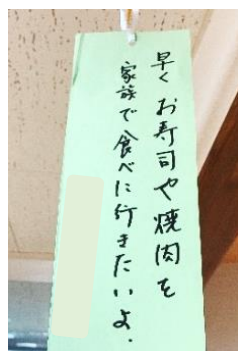 早くお寿司や焼肉を
家族で食べに行きたいよ.